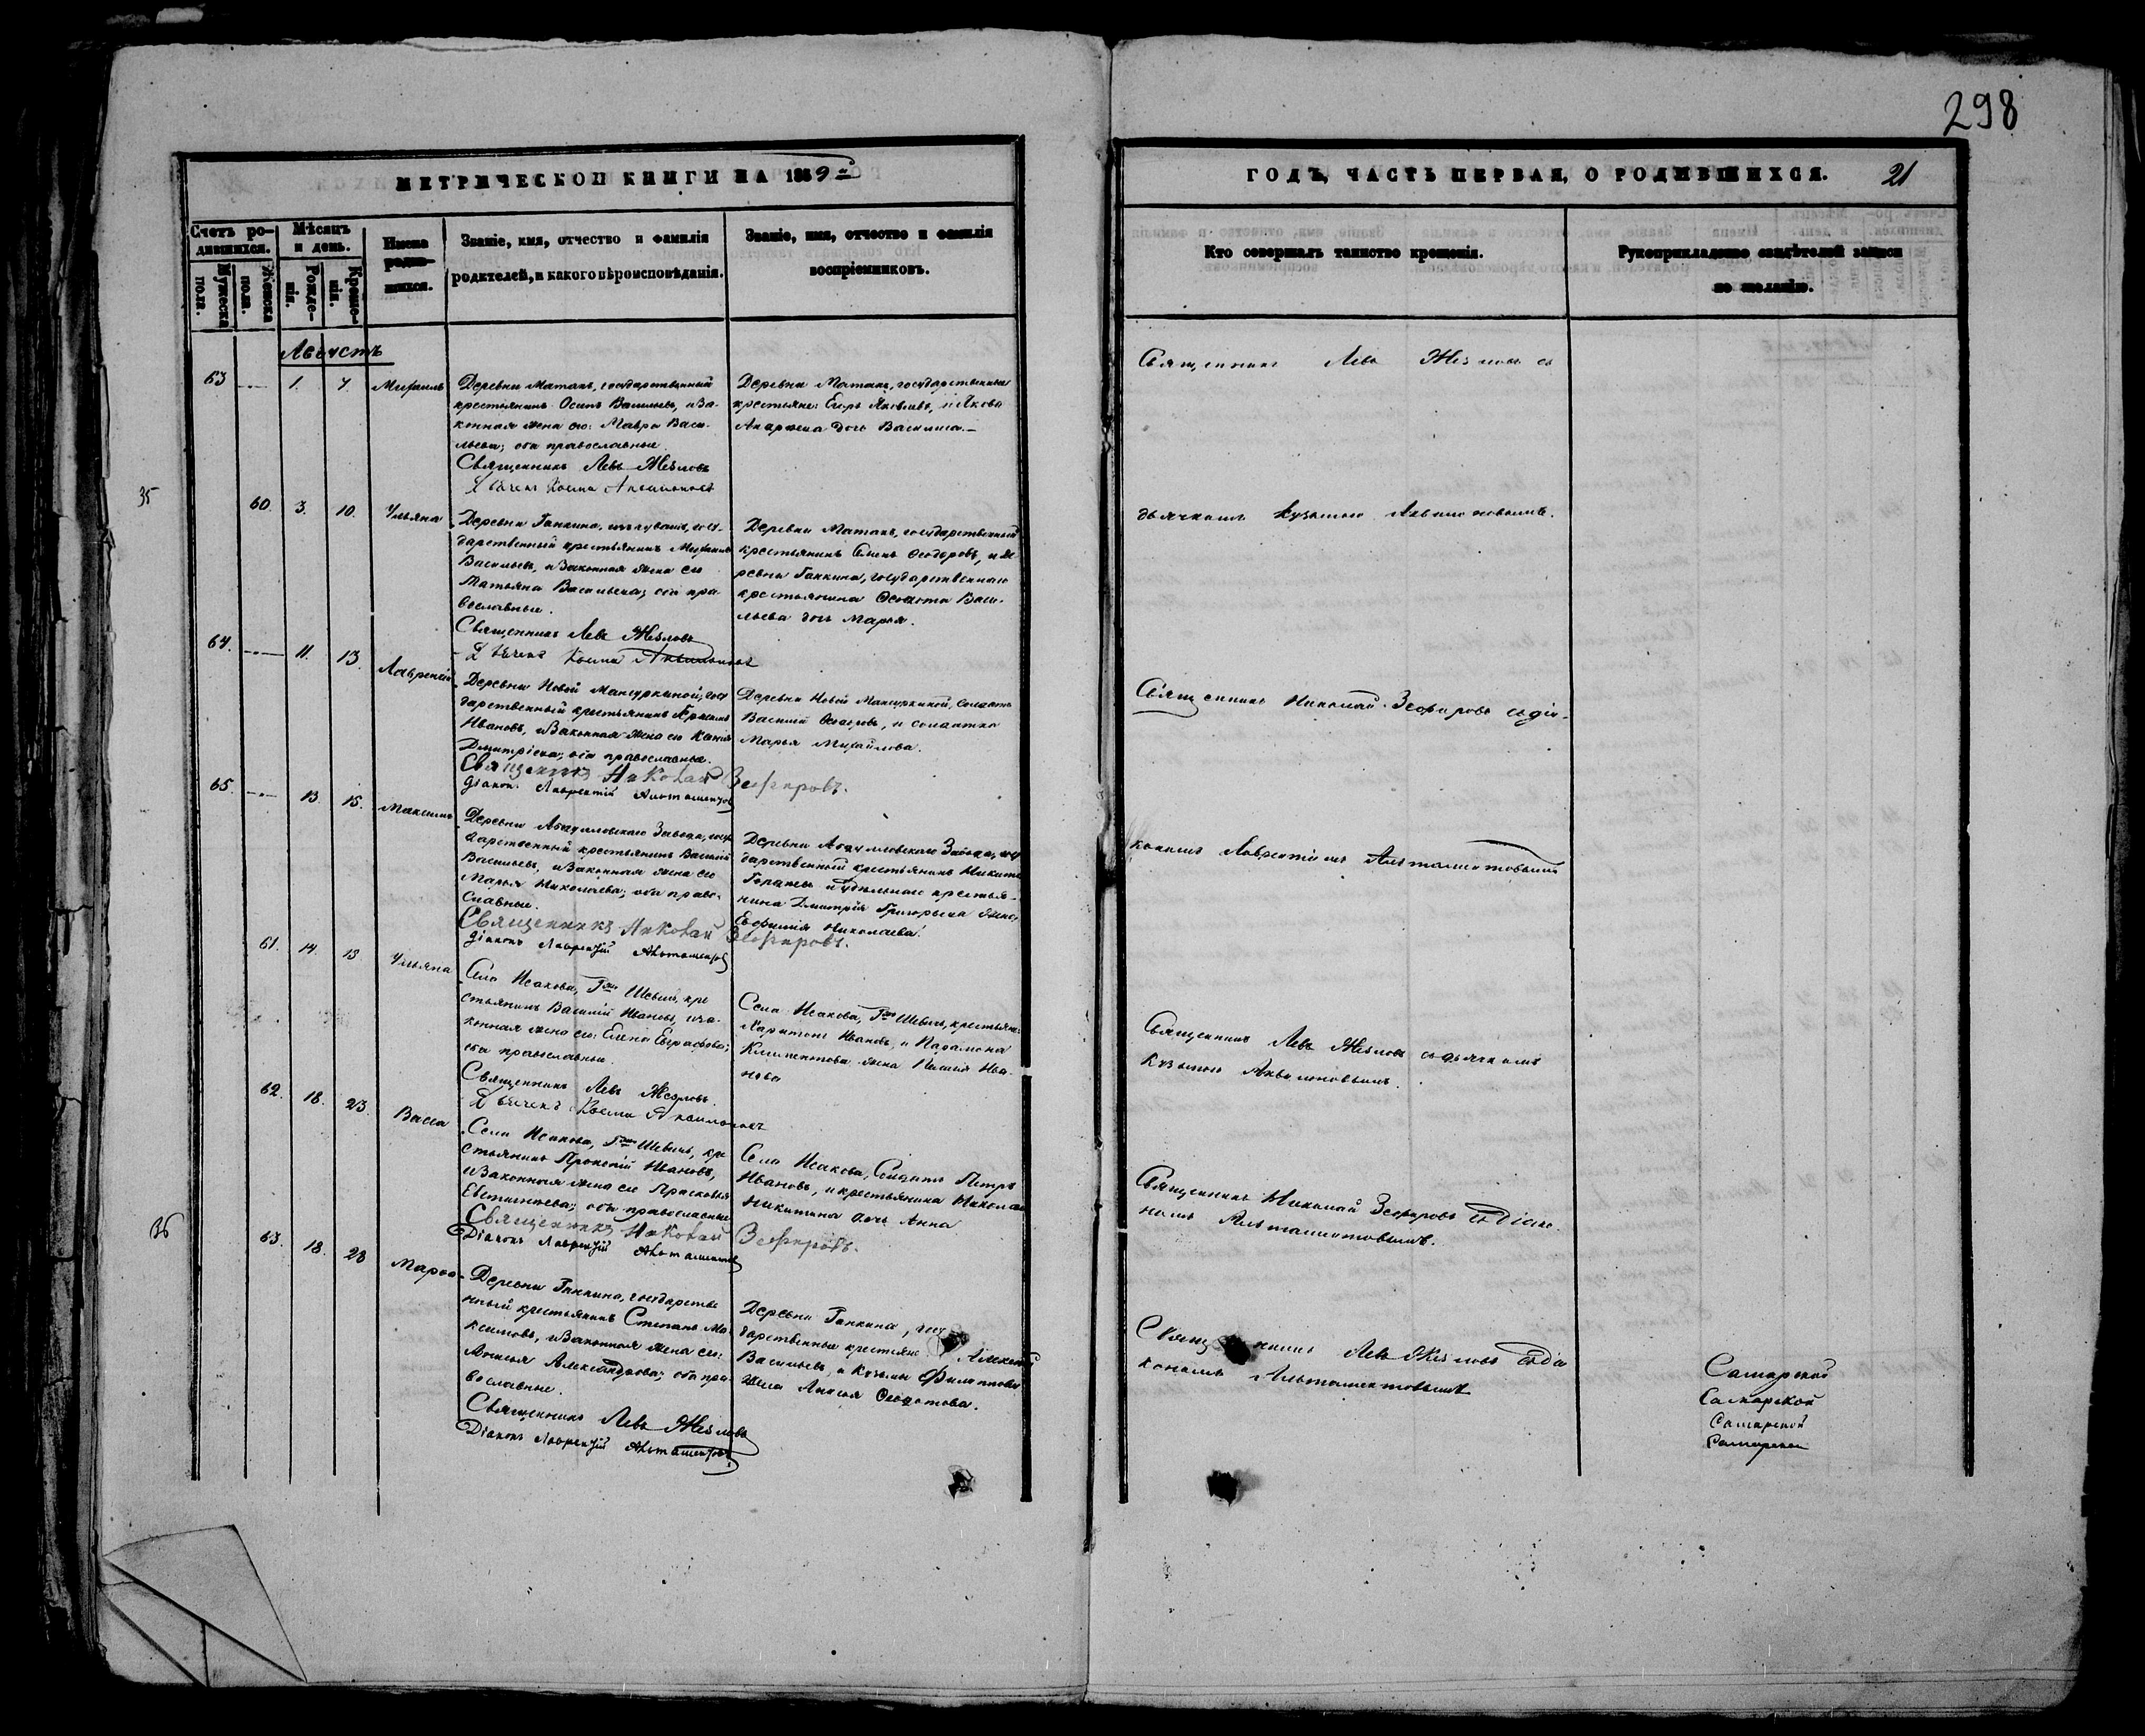 298
МЕТРИЧЕСКОЙ КНИГИ НА 1859й
ГОДЪ, ЧАСТЬ ПЕРВАЯ, О РОДИВШИХСЯ. 21
Счетъ ро-
дившихся.
Мужеска
пола.
Женска
пола.
Мѣсяцъ
и день.
Рожде-
нія.
Креще-
нія.
Имена
роди-
вшихся.
Званіе, имя, отчество и фамилія
родителей, и какого вѣроисповѣданія.
Званіе, имя, отчество и фамилія
воспріемниковъ.
Кто совершалъ таинство крещенія.
Рукоприкладство свидѣтелей записи
по желанію.
Августъ
63 1. 7. Михаилъ
Деревни Матакъ, государственный
крестьянинъ Осипъ Васильевъ, и за-
конная жена его: Мавра Васи-
льева; оба православные.
Священникъ Левъ
Дьячекъ Косма
Деревни Матакъ, государственные
крестьяне: Егоръ Яковлевъ, и Якова
дочь Василиса.
Священникъ Левъ съ
дьячкомъ Кузьмою
35
60. 3. 10. Ульяна
Деревни Ганкина, госу-
дарственный крестьянинъ Михаилъ
Васильевъ, и законная жена его
Татьяна Васильева; оба пра-
вославные.
Священникъ Левъ
Дьячекъ Косма
Деревни Матакъ, государственный
крестьянинъ Семенъ Ѳеодоровъ, и де-
ревни Ганкина, государственнаго
крестьянина Васи-
льева дочь Марья.
64. 11. 13. Лаврентій
Деревни Новой Мансуркиной, госу-
дарственный крестьянинъ
Ивановъ, и законная жена его
Дмитріева; оба православные.
Священникъ Николай Зефировъ.
Діаконъ Лаврентій Альташентовъ
Деревни Новой Мансуркиной, солдатъ
Василій и солдатка
Марья Михайлова.
Священникъ Николай Зефировъ съ діа-
кономъ Лаврентіемъ Альташентовымъ
65. 13. 15. Максимъ
Деревни Абдулловскаго Завода, госу-
дарственный крестьянинъ Василій
Васильевъ, и законная жена его
Марья Николаева; оба право-
славные.
Священникъ Николай Зефировъ.
Діаконъ Лаврентій Альташентовъ
Деревни Абдулловскаго Завода, госу-
дарственный крестьянинъ Никита
и удѣльнаго крестья-
нина Дмитрія Григорьева жена
Евфимія Николаева.
61. 14. 15 Ульяна
Села Исакова, Гжи Шевичъ, кре-
стьянинъ Василій Ивановъ, и за-
конная жена его: Елена Евграфова;
оба православные.
Священникъ Левъ
Дьячекъ Косма
Села Исакова, Гжи Шевичъ, крестьяне:
Харитонъ Ивановъ, и Парамона
Климентова жена Ива-
нова
Священникъ Левъ съ дьячкомъ
Кузьмою
62. 18. 23. Васса
Села Исакова, Гжи Шевичъ, кре-
стьянинъ Прокопій Ивановъ,
и законная жена его Прасковья
Евстигнеева; оба православные
Священникъ Николай Зефировъ.
Діаконъ Лаврентій Альташентовъ
Села Исакова, Солдатъ Петръ
Ивановъ, и крестьянина Николая
Никитина дочь Анна
Священникъ Николай Зефировъ съ діако-
номъ Альташентовымъ.
36
63. 18. 28 Марѳа
Деревни Ганкина, государстве-
нный крестьянинъ Степанъ Ма-
ксимовъ, и законная жена его:
Александрова; оба пра-
вославные.
Священникъ Левъ
Діаконъ Лаврентій Альташентовъ
Деревни Ганкина, госу-
дарственные крестьяне Алексей
Васильевъ, и Кузьмы Филиппова
жена Ѳедотова.
Левъ съ діа-
кономъ Альташентовымъ
Самарской
Самарской
Самарской
Самарской